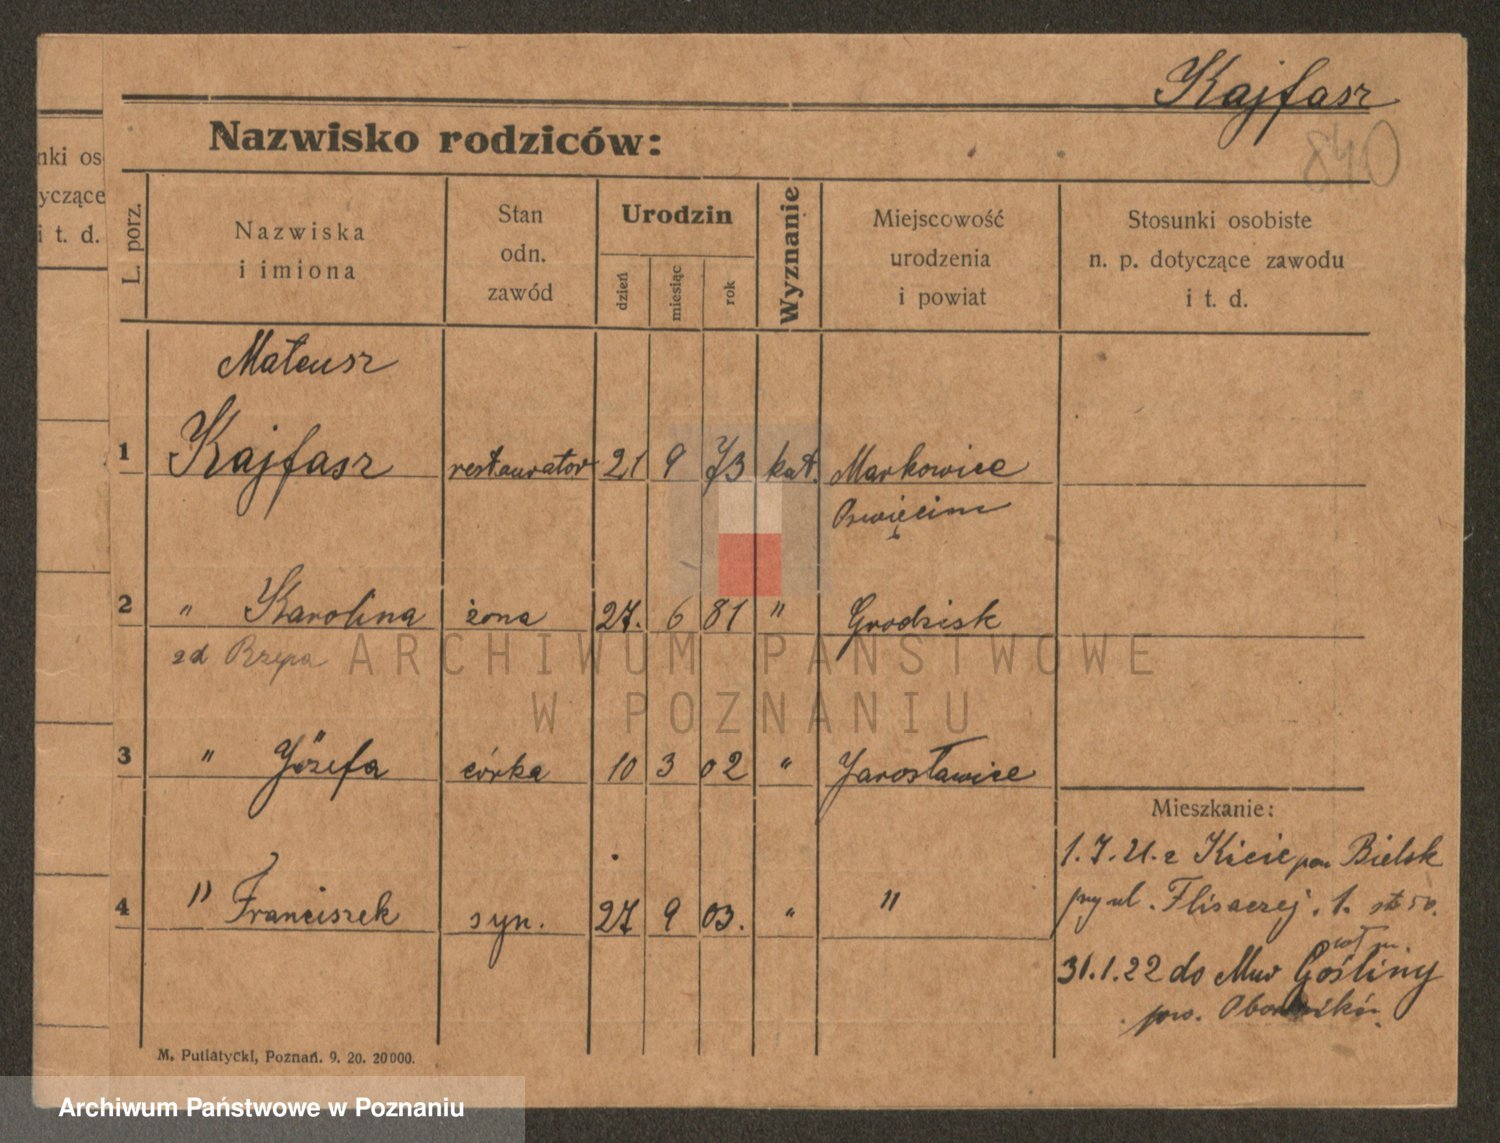 Kajfasz
840
Nazwisko rodziców:
nki os
yczące
i t. d.
L. porz.
Nazwiska
i imiona
Stan
odn.
zawód
Urodzin
dzień
miesiąc
rok
Wyznanie
Miejscowość
urodzenia
i powiat
Stosunki osobiste
n. p. dotyczące zawodu
i t. d.
Mateusz
1 Kajfasz restaurator 21 9 73 kat. Markowice
Oswięcim
2 " Karolina żona 27. 6 81 " Grodzisk
zd Rzepa
ARCHIWUM PAŃSTWOWE
W POZNANIU
3 " Józefa córka 10 3 02 " Jarosławice
Mieszkanie:
1.7.21. z Kicic pow Bielsk
przy ul. Flisaczej. 1.
4 " Franciszek syn. 27 9 03. " "
31.1.22 do Mur Gośliny
pow. Obornikór
M. Putiatycki, Poznań. 9. 20. 20000.
Archiwum Państwowe w Poznaniu